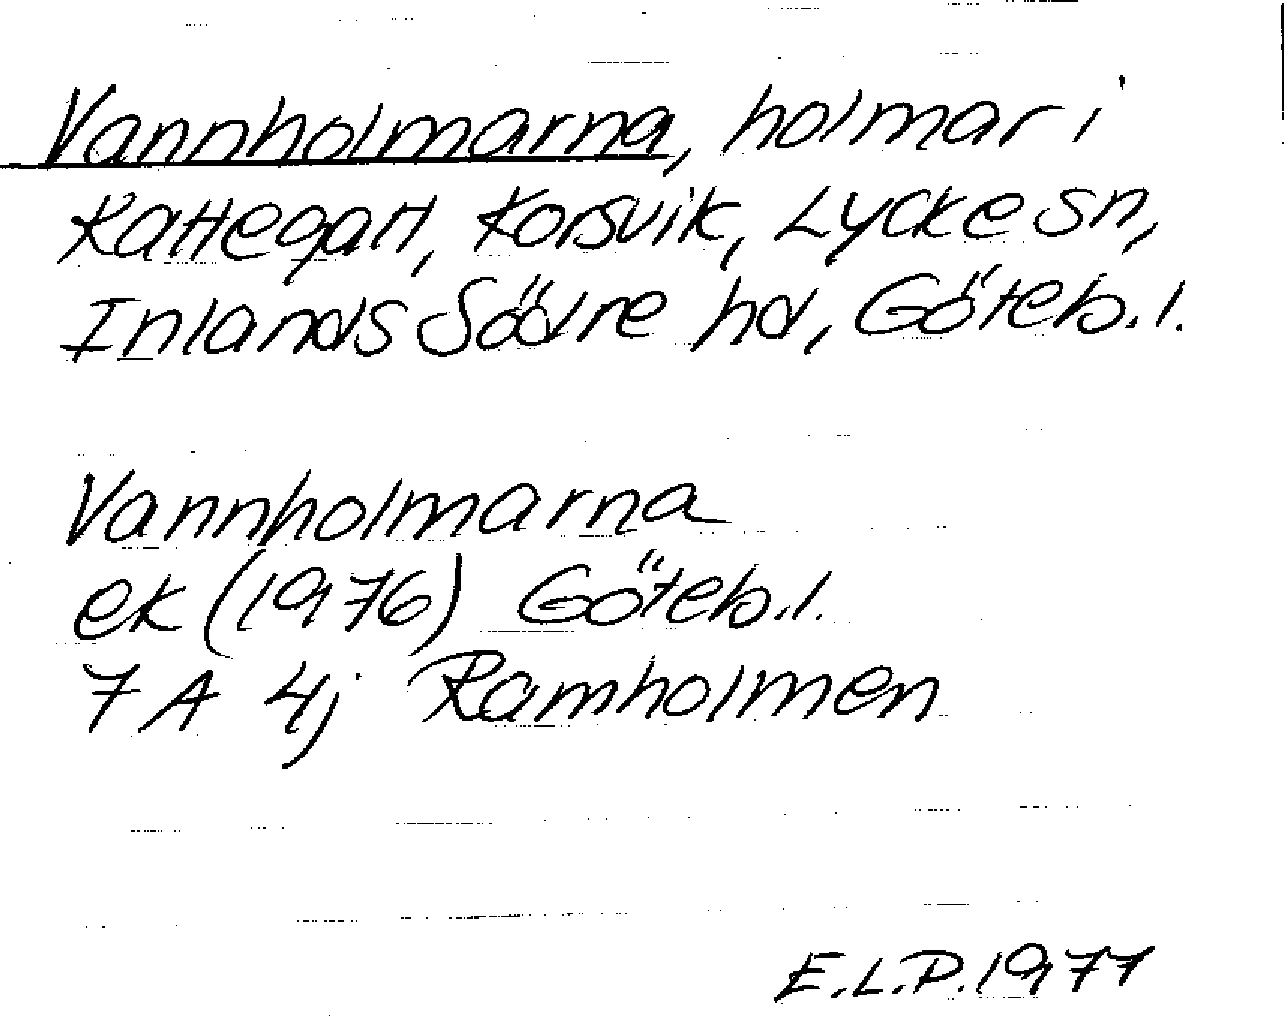 Vannholmarna, holmar i
Kattegatt, Korsvik, Lycke sn,
Inlands Södre hd, Göteb.l.
Vannholmarna
ek (1976) Göteb.l.
7 A 4j Ramholmen
E.L.P. 1977